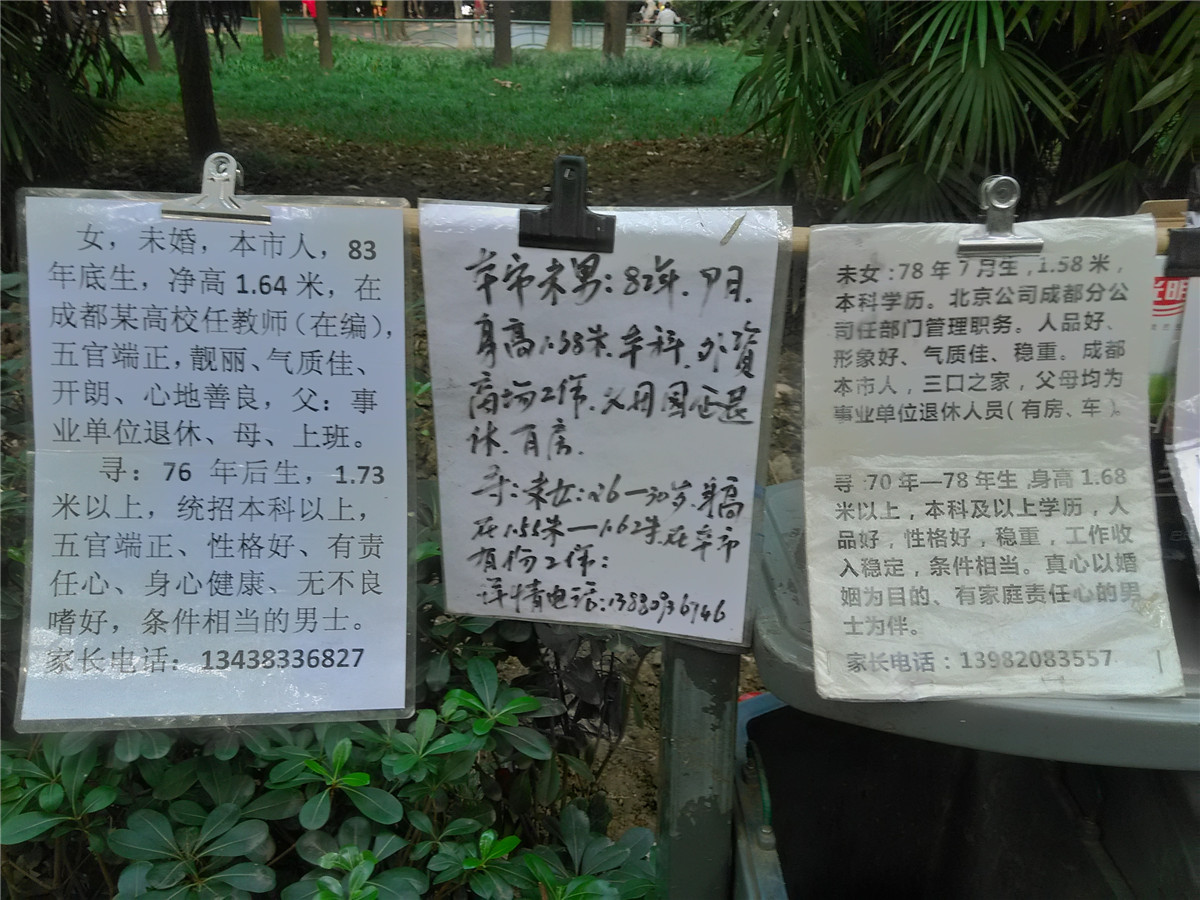 女，未婚，本市人，83
年底生，净高1.64米，在
成都某高校任教师（在编），
五官端正，靓丽、气质佳、
开朗、心地善良，父：事
业单位退休、母、上班。
寻：76 年后生，1.73
米以上，统招本科以上，
五官端正、性格好、有责
任心、身心健康、无不良
嗜好，条件相当的男士。
家长电话：13438336827
本市未男：82年.7月.
身高1.58米.本科.外资
商场工作.父母国企退
休.有房.
寻：未女：26—30岁.身高
在1.55米—1.62米.在本市
有份工作：
详情电话：13880936746
未女：78年7月生，1.58米，
本科学历。北京公司成都分公
司任部门管理职务。人品好、
形象好、气质佳、稳重。成都
本市人，三口之家，父母均为
事业单位退休人员（有房、车）。
寻：70年—78年生，身高1.68
米以上，本科及以上学历，人
品好，性格好，稳重，工作收
入稳定，条件相当。真心以婚
姻为目的、有家庭责任心的男
士为伴。
家长电话：13982083557